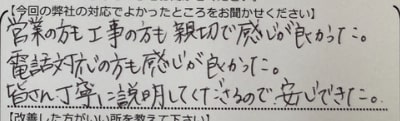 【今回の弊社の対応でよかったところをお聞かせください】
営業の方も工事の方も親切で感じが良かった。
電話対応の方も感じが良かった。
皆さん丁寧に説明してくださるので、安心できた。
【改善した方がいい所を教えて下さい】